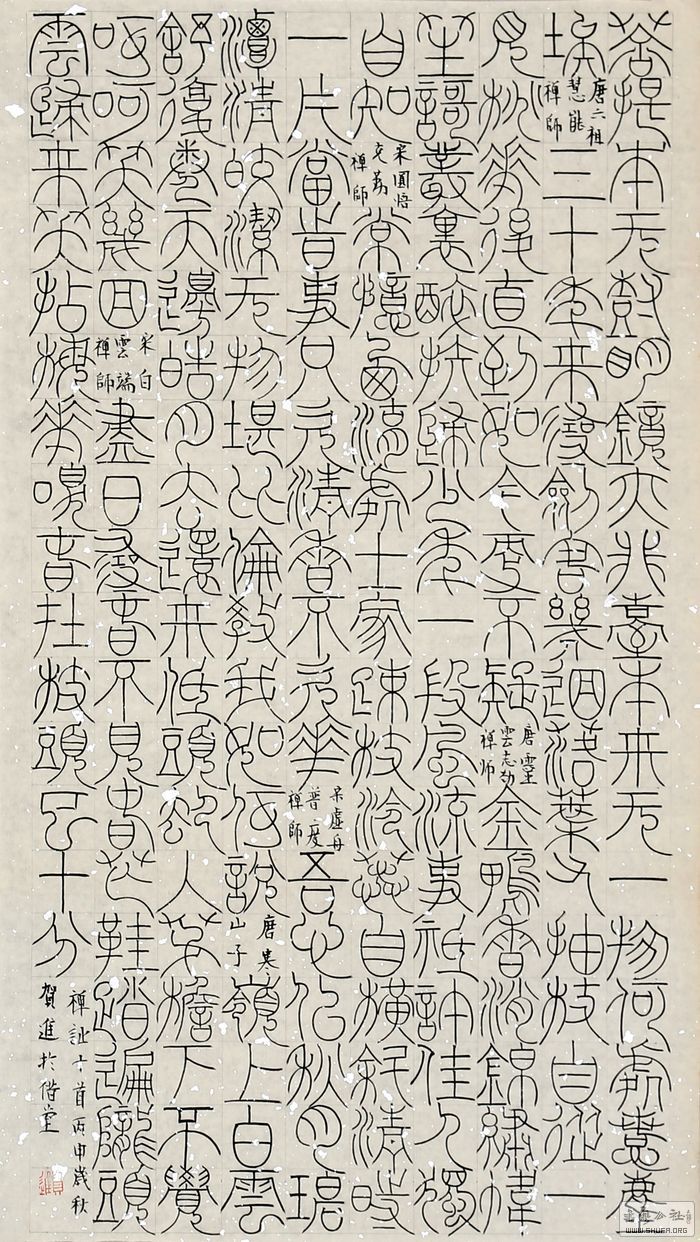 菩提本无樹明鏡亦非臺本来无一物何處惹塵
埃唐六祖慧能禪師三十年来尋劍客幾迴落葉又抽枝自從一
見桃華後直到如今更不疑唐靈雲志勤禪师金鴨香消錦繡幃
笙謌叢裏醉扶歸少年一段風流事祗許佳人獨
自知宋圜悟克勤禪師常憶西湖處士家疎枝冷蕊自橫斜清時
一片當時事只爲清香不爲華宋虛舟普度禪師吾心似秋月碧
潭清皎潔无物堪比倫教我如何說唐寒山子嶺上白雲
舒復卷天邊皓月去還来低頭却入茅檐下不覺
呵呵笑幾回宋白雲端禪師盡日尋春不見春芒鞋踏遍隴頭
雲歸来笑拈梅華嗅春在枝頭已十分
禪詩七首丙申歲秋
賀進於偕堂
WWW.SHUFA.ORG